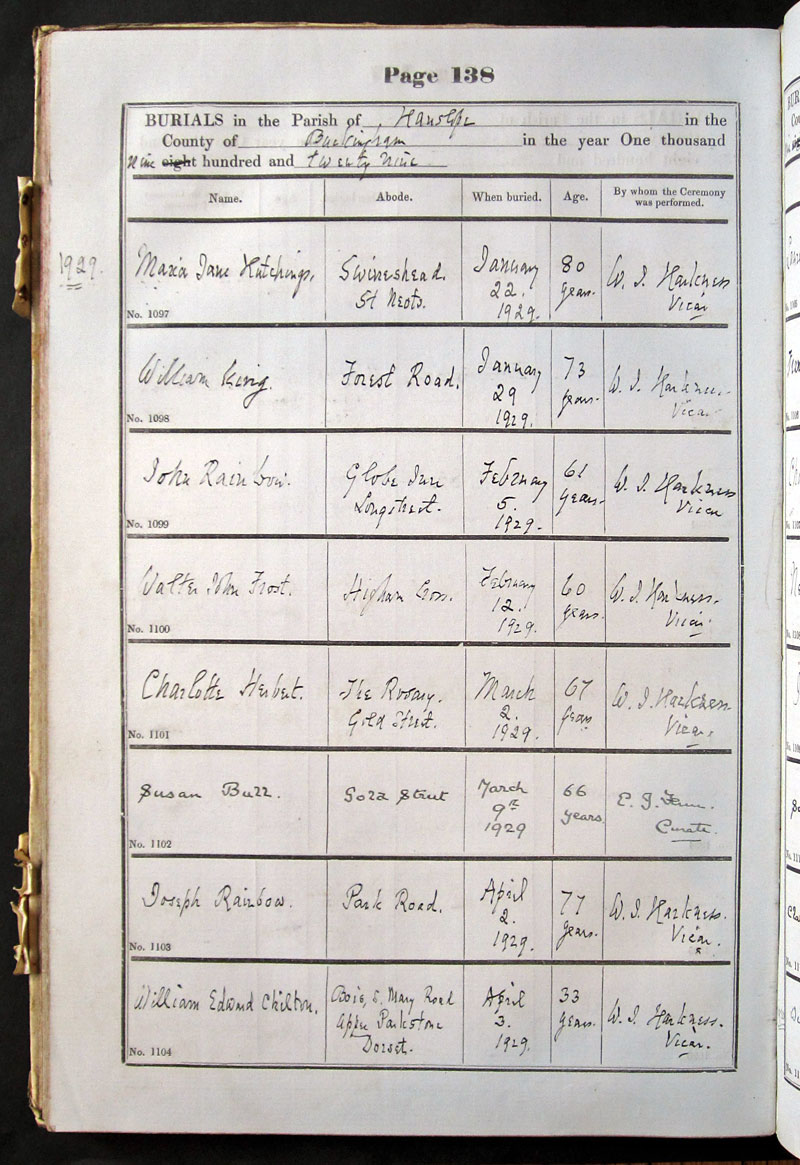 Page 138
BURIALS in the Parish of Hanslope in the
County of Buckingham in the year One thousand
Nine eight hundred and twenty nine
Name. Abode. When buried. Age. By whom the Ceremony
was performed.
1929.
Maria Jane Hutchings. Swineshead. January 80 W. J. Harkness
St Neots. 22. years. Vicar
No. 1097 1929.
William King. Forest Road. January 73 W. J. Harkness.
29 years. Vicar
No. 1098 1929.
John Rainbow. Globe Inn February 61 W. J. Harkness
Longstreet. 5. years. Vicar
No. 1099 1929.
Walter John Frost. Higham Cross. February 60 W. J. Harkness.
12. years. Vicar.
No. 1100 1929.
Charlotte Herbert. The Rosary. March 67 W. J. Harkness
Gold Street. 2. years Vicar.
No. 1101 1929.
Susan Gold Street March 66
9th years. Curate.
No. 1102 1929
Joseph Rainbow. Park Road. April 77 W. J. Harkness.
2. years. Vicar.
No. 1103 1929.
William Edward Chilton. Mary Road April 33 W. J. Harkness.
Upper Parkstone 3. years. Vicar.
No. 1104 Dorset. 1929.